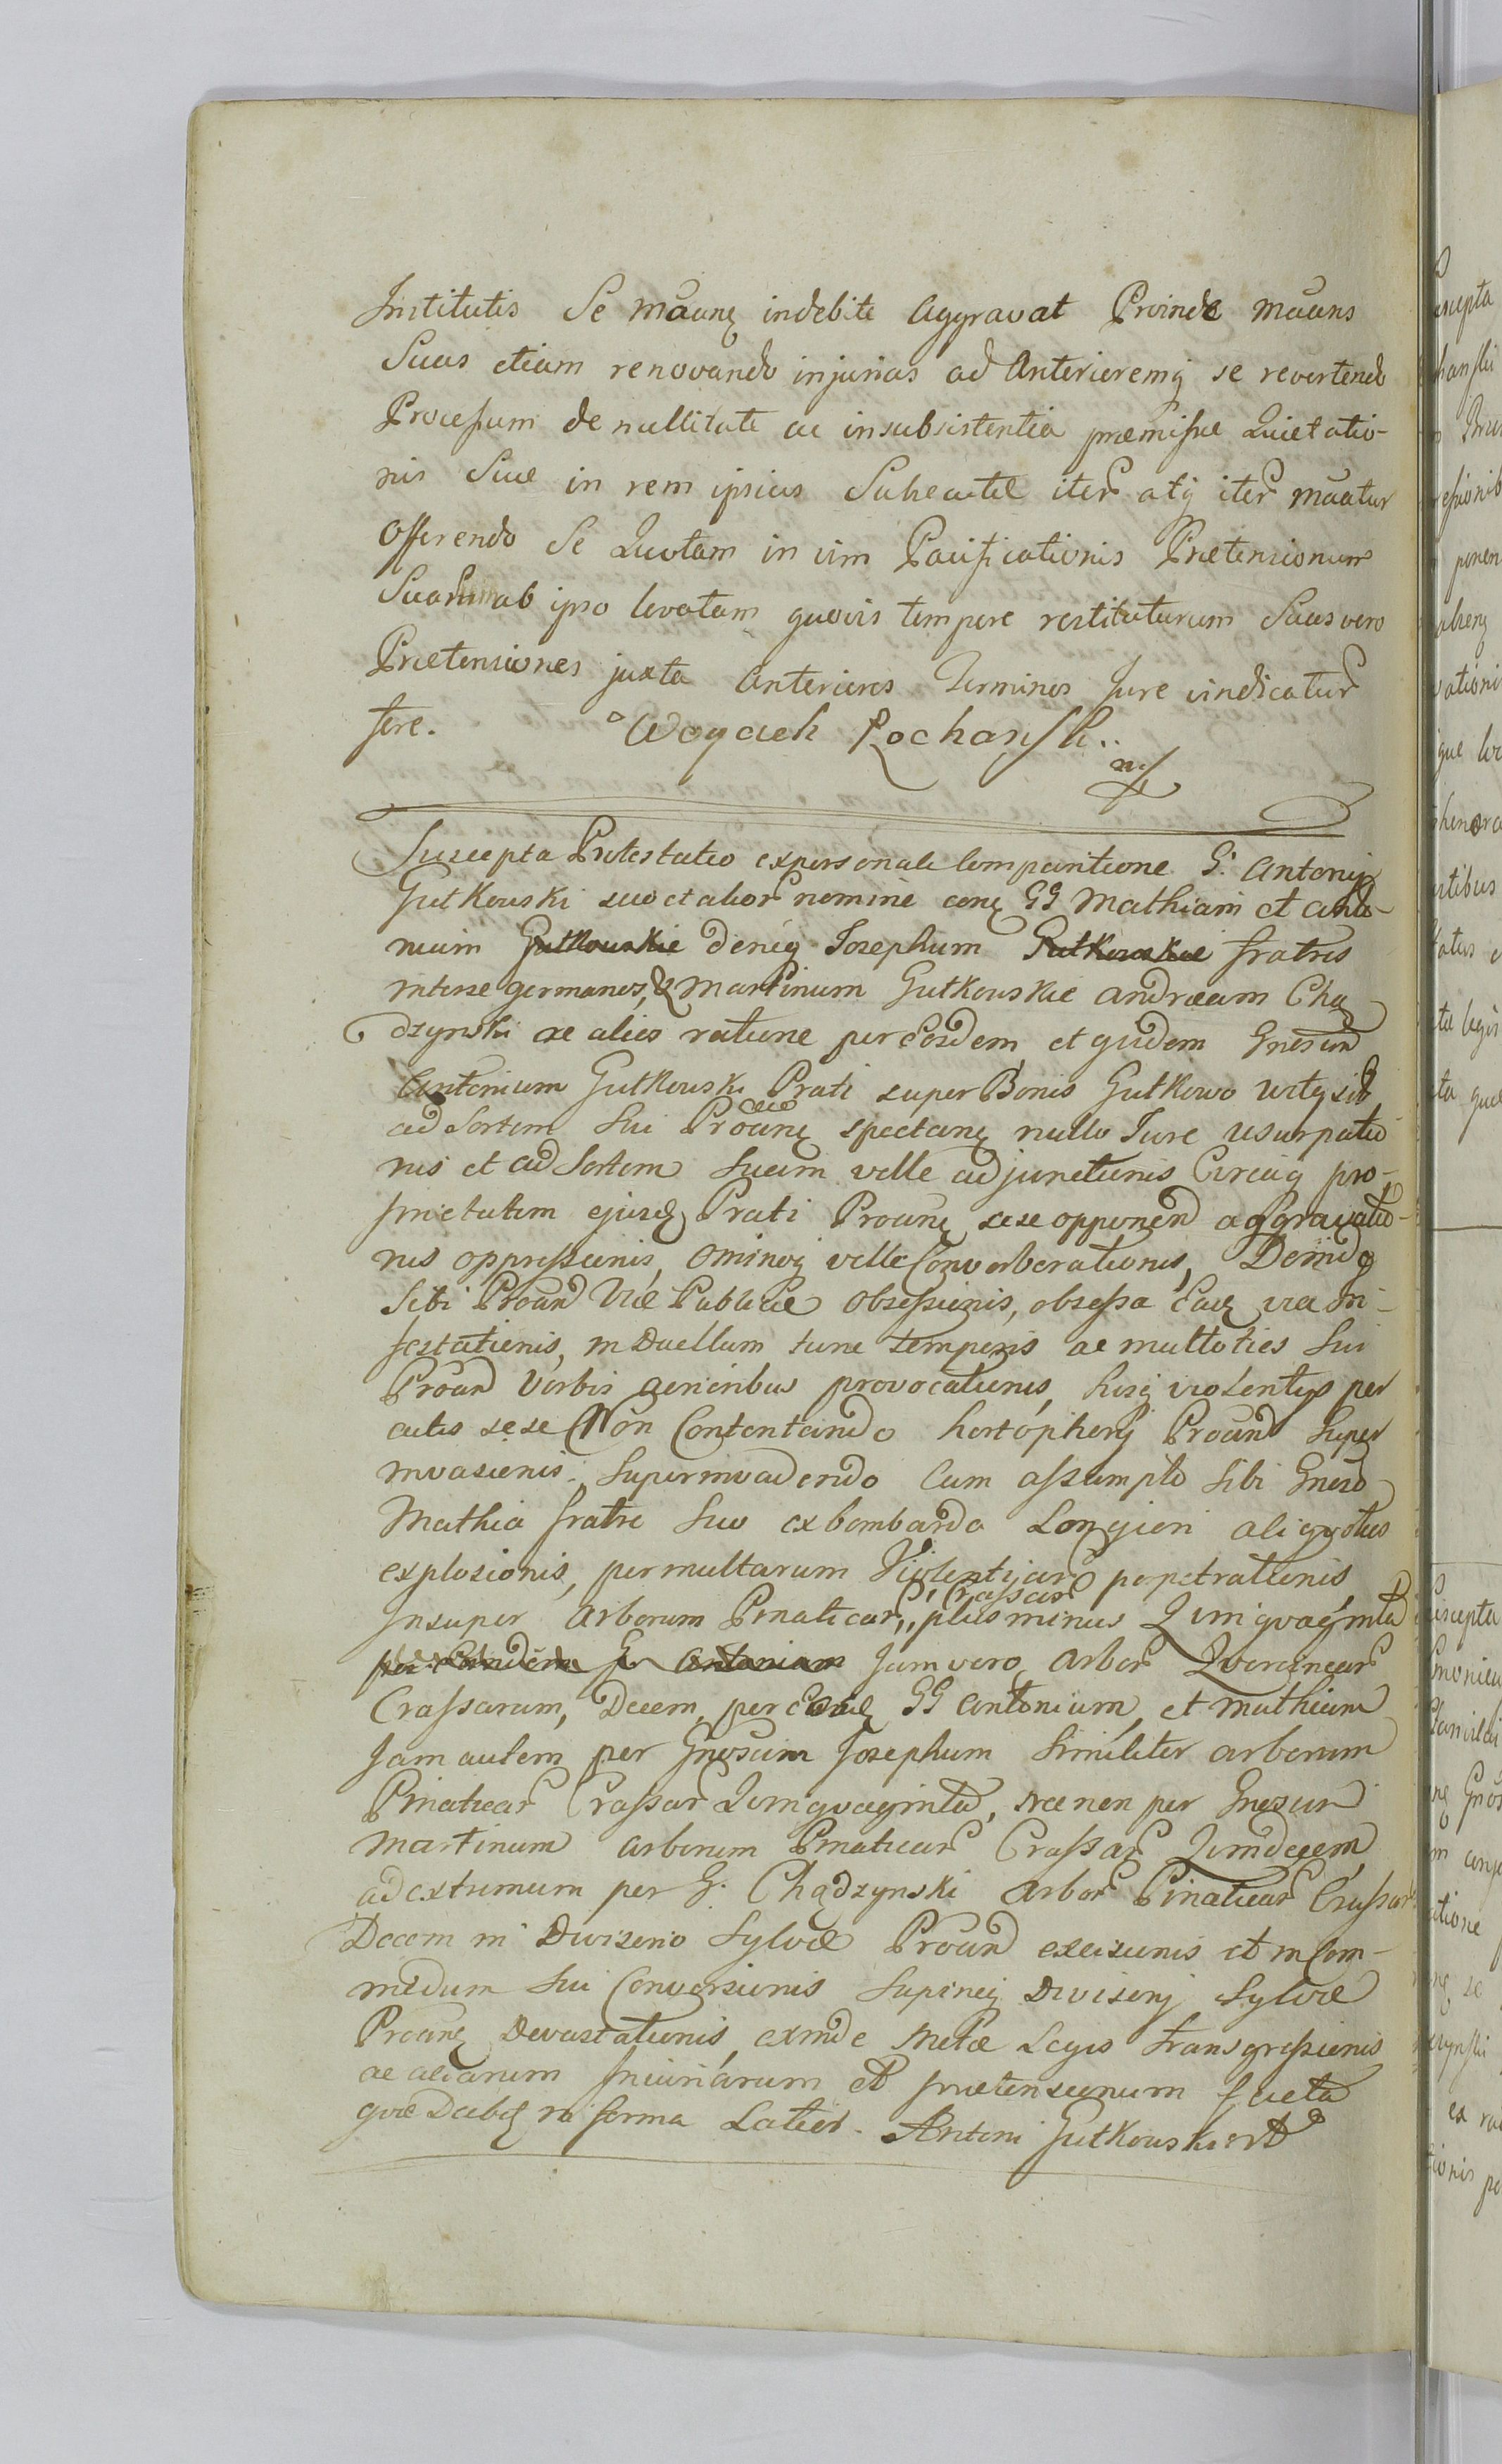 Institutis Se mãanꝫ indebite Aggravat Proinde mãans
Suas etiam renovando injurias ad Anterioremq̃ se revertendo
Processum de nullitate ac insubsistentia præmissæ Quietatio-
nis Suæ in rem ipsius iter̃ atq̃ iter̃ mãatur
Offerendo Se Quotam in vim Pacificationis Prætensionum
Suarum ab ipso levatam quovis tempore restituturum Suas vero
Prætensiones juxta Anteriores Terminos Jure vindicatur̃
fore. Woyciech Kochanski..
Suscepta Protestatio ex personali Comparitione G. Antonij
Gutkowski suo et alior̃ nomine conꝫ GG Mathiam et Anto-
nium Gutkowskie deniq̃ Josephum Gutkowskie fratres
interse germanos, & Martinum Gutkowskie Andræam Chą
dzynski ac alios ratione per eosdem et quidem Gnosum
Antonium Gutkowski Prati super Bonis Gutkowo utq̃ sit
ad Sortem Sui Prõanꝫ spectanꝫ nullo Jure usurpatio
nis et ad Sortem Suam velle adjunctionis Circaq̃ pro-
prietatem ejusdꝫ Prati Proanꝫ sese opponend aggravatio-
nis oppressionis, Ominoq̃ velle Converberationis, Deinde
Sibi Proand Viæ Publicæ Obsessionis, obsessa Eaꝫ via In-
festationis, in Duellum tunc temporis ac multoties Sui
Proand Verbis acrioribus provocationis, hisq̃ violentys per
actis sese Non Contentando Proand Super
invasionis. Superinvadendo Cum assumpto Sibi Gneso
Mathia fratre Suo ex bombarda Longiori aliquoties
explosionis, permultarum Violentiar̃ perpetrationis
Insuper Arborum Pinaticar̃, Crassar̃ plus minus Quinquaginta
per eundem G. Antonium Jam vero Arbor̃ Quercinear̃
Crassarum, Decem, per Eosdꝫ GG Antonium, et Mathiam
Jam autem per Gnosum Josephum Similiter arborum
Pinaticar̃ Crassar̃ Quinquaginta, nec non per Gnosum
Martinum arborum Pinaticar̃ Crassar̃ Quindecem
ad extremum per G. Chądzynski Arbor̃ Pinaticar̃ Crassar̃
Decem in Divisorio Sylvæ Proand excisionis et in Com-
modum Sui Conversionis Supineq̃ Divisorij Sylvæ
Proanꝫ Devastationis, exinde Metæ Legis transgressionis
ac aliarum Injuriarum et prætensionum facta
quæ Dabiꝫ in forma Latior. Antoni Gutkowski